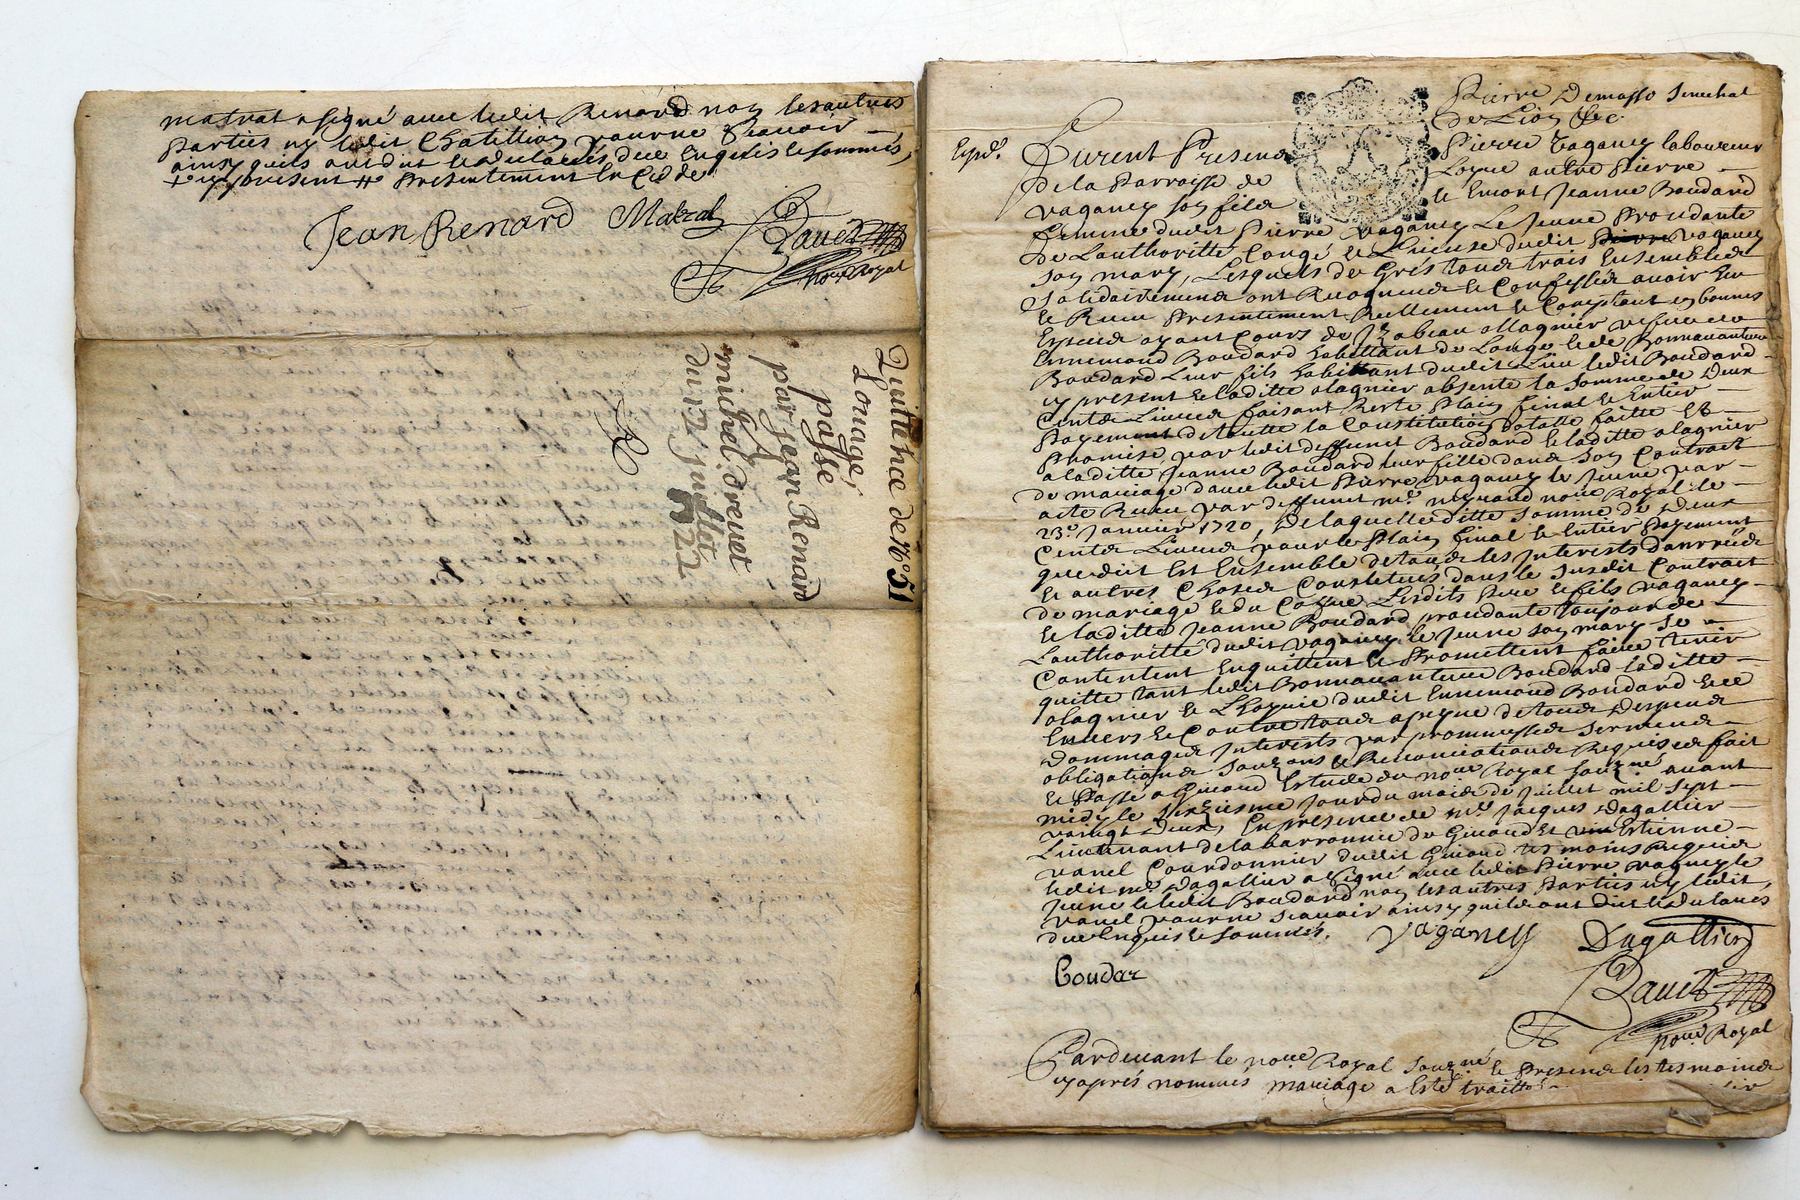 matrat a signé avec ledit Renard non les autres
parties ny ledit Chatillion pour ne scavoir
ainsy quils ont dit le duement enquis et sommés
present presentement
Jean Renard Matrat
Davet
nore Royal
Quittence de 76# 5s
Louage,
passé
par jean Renard
A
michel drevet
du 17 juillet
1722
Pierre Demasso senechal
De Lion &c
Exped.
Furent Presens Pierre vaganey laboureur
De la Parroisse de Loyre autre Pierre
vaganey son fils et Jeanne Boudard
femme dudit Pierre vaganey Le Jeune Procedante
De Lauthoritté Congé et Licence dudit Pierre vaganey
son mary, Lesquels de Gres tous trois Ensemble et
solidairement ont Recogneus et Confessés avoir Eu
et Receu Presentement Reellement et Comptant en bonnes
Especes ayant Cours de Izabeau Alagnier vefve de
Ennemond Boudard habittant de Longe et de Bonnavanture
Boudard Leur fils habittant dudit Lieu ledit Boudard
cy present et laditte alagnier absente la somme de Deux
Cents Livres faisant Reste Plain final et Entier
Payement de toutte la Constitution dotalle faitte et
Promise par ledit deffunct Boudard et laditte alagnier
a laditte Jeanne Boudard leur fille dans son Contrait
de mariage d'avec ledit Pierre vaganey le Jeune par
acte Receu par deffunct me. nore Royal le
23e. Janvier 1720, De laquelleditte somme de Deux
Cents Livres pour le Plain final et Entier Payement
que dit est Ensemble de tous les Interests d'arrerés
et autres Choses Constitués dans le susdit Contrait
de mariage Lesdits Pere et fils vaganey
et laditte Jeanne Boudard procedante toujours de
Lauthoritté dudit vaganey le Jeune son mary se
Contentent En quittent et Promettent faire tenir
quitte tant ledit Bonnavanture Boudard laditte
alagnier et Lhoyrie dudit Ennemond Boudard
Envers et Contre tous a peyne de tous Despens
Dommages Interests par promesses serments
obligations souzons et Renonciations Requises fait
et Passé a Givord Estude du nore Royal souzne avant
midy le seizieme jour du mois de Juillet mil sept
vaingt Deux, En presence de mre. Jacques Dagallier
Lieutenant de la barronnie de Givord et Estienne
vanel Courdonnier dudit Givord tesmoins Requis
ledit me. Dagallier a signé avec ledit Pierre vaganey le
jeune et ledit Boudard non les autres Parties ny ledit
vanel pour ne scavoir ainsy quils ont dit
Enquis et sommés.
vaganey Dagallier
Boudar
Davet
nore Royal
Pardevant le nore Royal souzné et Presens les tesmoins
cy après nommés mariage a Esté traitté